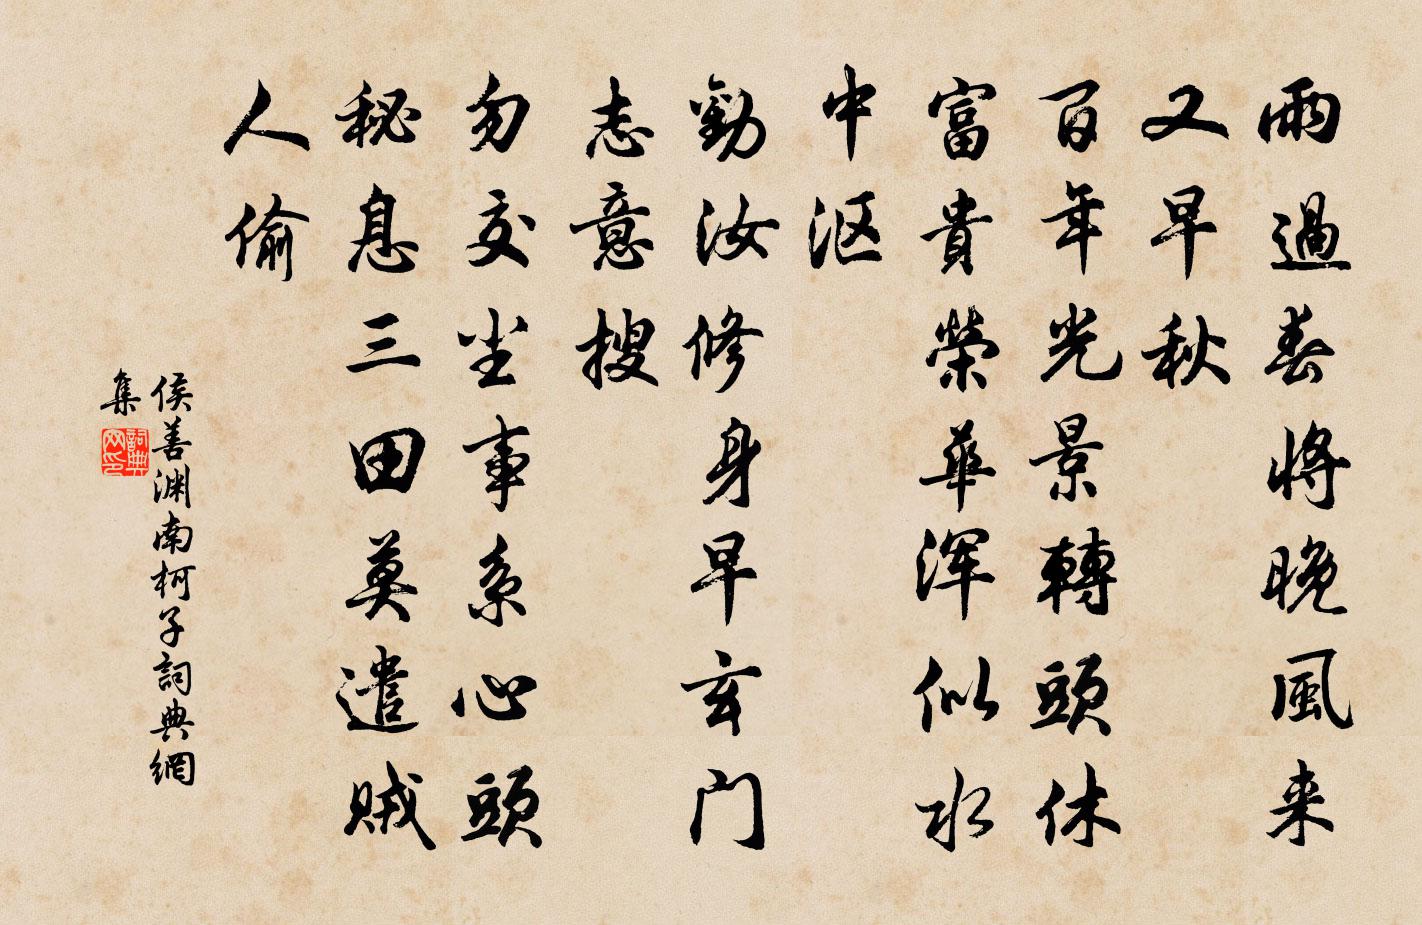 雨過春將晚風来
又早秋
百年光景轉頭休
富貴榮華浑似水
中沤
勸汝修身早玄门
志意搜
勿交尘事系心頭
秘息三田莫遣贼
人偷
侯善渊南柯子詞典網
集
詞典
网印